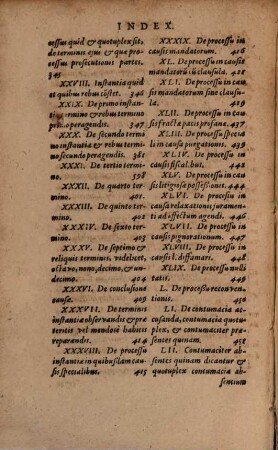 INDEX.
cessus quid & quotuplex sit,
de terminis ejus & qua pro-
cessus prosecutionis partes.
345
XXVIII. Instantia quid
at quibus rebus cõstet. 346
XXIX. De primo instan-
tiæ termino & rebus termino
primo peragendis. 347
XXX. De secundo termi-
no instantiæ & rebus termi-
no secundo peragendis. 381
XXXI. De tertio termi-
no. 398
XXXII. De quarto ter-
mino. 400
XXXIII. De quinto ter-
mino. 402
XXXIV. De sexto ter-
mino. 403
XXXV. De septimo &
reliquis terminis, videlicet,
octavo, nono, decimo, & un-
decimo. 404
XXXVI. De conclusione
causæ. 404
XXXVII. De terminis
instantiæ observandis & præ
teritis vel mendose habitis
reparandis. 414
XXXVIII. De processu
instantiæ in quibusdam cau-
sis specialibus. 415
XXXIX. De processu in
causis mandatorum. 416
XL. De processu in causis
mandatorũ cũ clausula. 418
XLI. De processu in causis
mandatorum sine clausu-
la. 419
XLII. De processu in cau-
sis fractæ pacis publicæ. 430
XLIII. De processu speciali
in causa purgationis. 433
XLIV. De processu in
causis fiscalibus. 434
XLV. De processu in cau-
sis litigiosæ possessionis. 444
XLVI. De processu in
causa relaxationis juramen-
ti ad effectum agendi. 446
XLVII. De processu in
causis pignorationum. 448
XLVIII. De processu in
causis l. diffamari. 449
XLIX. De processu nulli
tatis. 449
L. De processu reconven-
tionis. 450
LI. De contumacia ac-
cusanda, contumacia quotu-
plex, & contumaciter præ-
sentes quinam. 450
LII. Contumaciter ab-
sentes quinam dicantur &
quotuplex contumacia ab-
sentium